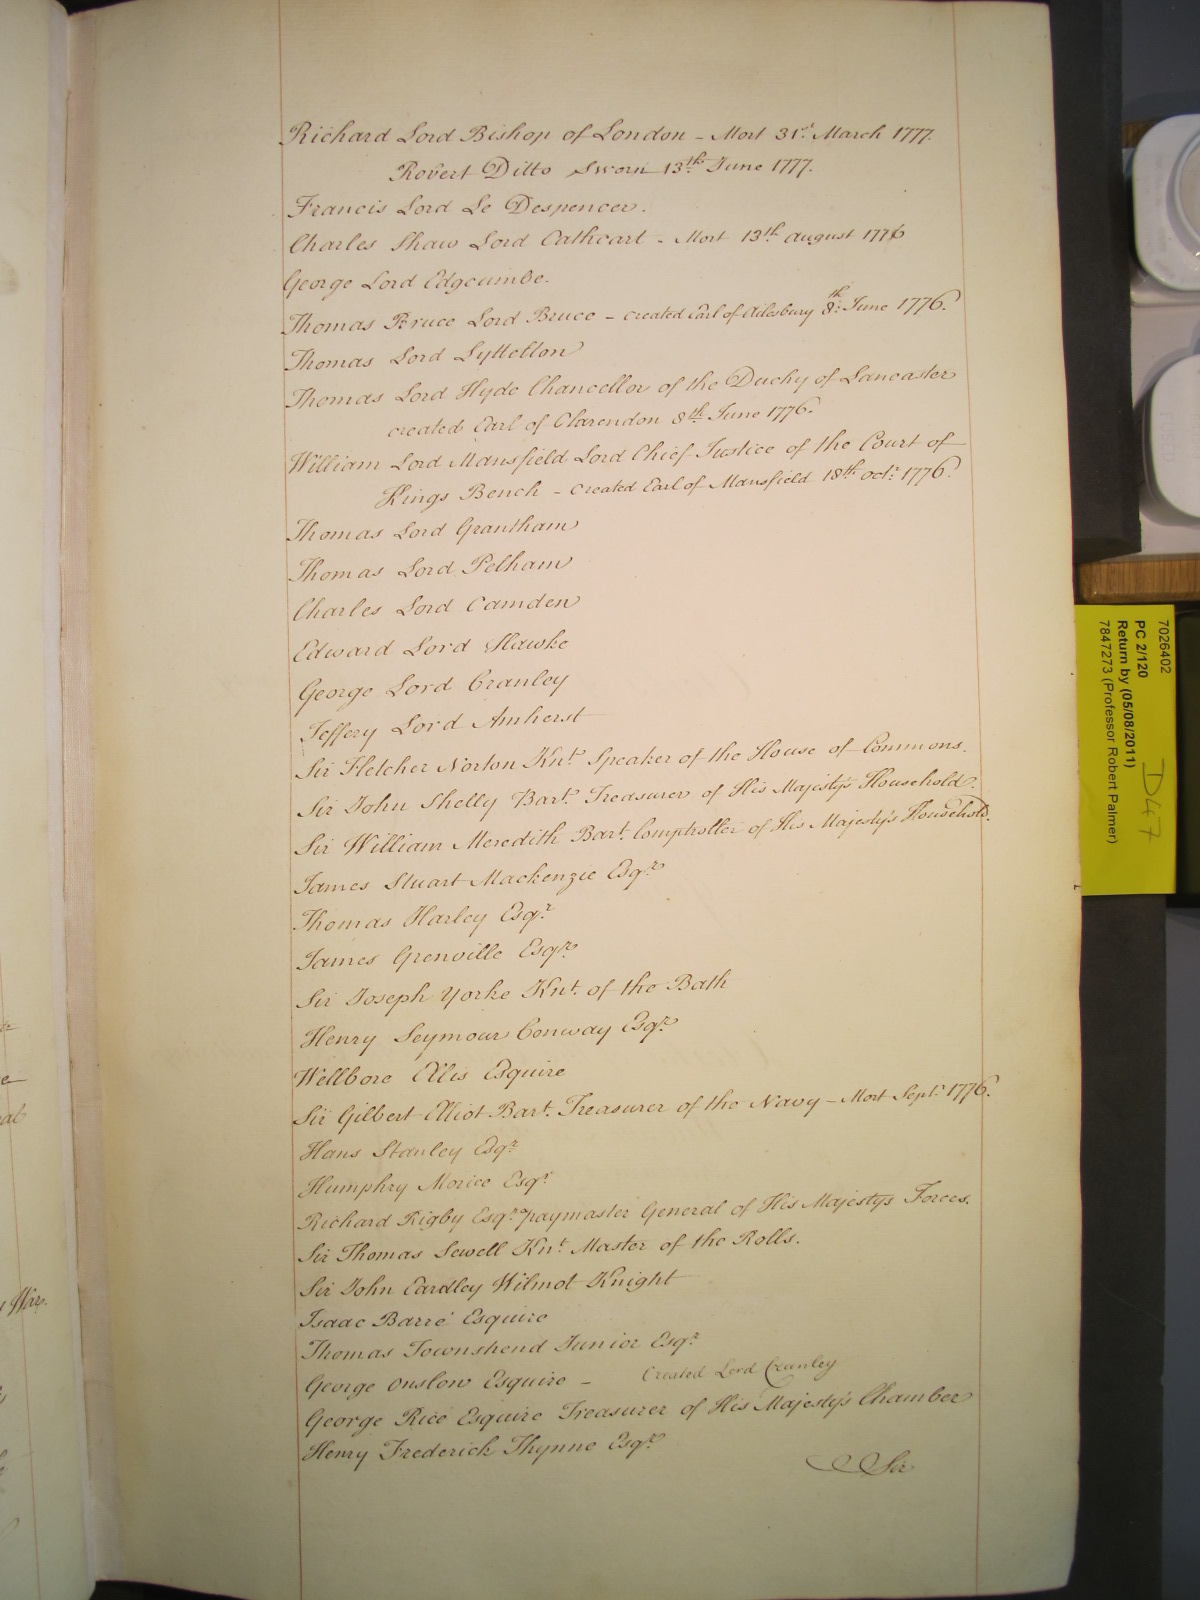 Richard Lord Bishop of London - Mort 31st. March 1777.
Robert Ditto Sworn 13th. June 1777.
Francis Lord Le Despencer.
Charles Shaw Lord Cathcart - Mort 13th. August 1776
George Lord Edgcumbe.
Thomas Bruce Lord Bruce - created Earl of Ailesbury 8th: June 1776.
Thomas Lord Lyttelton
Thomas Lord Hyde Chancellor of the Duchy of Lancaster
created Earl of Clarendon 8th. June 1776.
William Lord Mansfield Lord Chief Justice of the Court of
Kings Bench - created Earl of Mansfield 18th Octr: 1776.
Thomas Lord Grantham
Thomas Lord Pelham
Charles Lord Camden
Edward Lord Hawke
George Lord Cranley
Jeffery Lord Amherst
Sir Fletcher Norton Knt. Speaker of the House of Commons.
Sir John Shelly Bart. Treasurer of His Majesty's Household.
Sir William Meredith Bart. Comptroller of His Majesty's Household.
James Stuart Mackenzie Esqr.
Thomas Harley Esqr.
James Grenville Esqr.
Sir Joseph Yorke Knt. of the Bath
Henry Seymour Conway Esqr.
Wellbore Ellis Esquire
Sir Gilbert Elliot Bart. Treasurer of the Navy - Mort Sept: 1776.
Hans Stanley Esqr.
Humphry Morice Esqr.
Richard Rigby Esqr. paymaster General of His Majestys Forces.
Sir Thomas Sewell Knt. Master of the Rolls.
Sir John Eardley Wilmot Knight
Isaac Barré Esquire
Thomas Townshend Junior Esqr.
George Onslow Esquire - Created Lord Cranley
George Rice Esquire Treasurer of His Majesty's Chamber
Henry Frederick Thynne Esqr.
Sir
7026402
PC 2/120
Return by (05/08/2011)
7847273 (Professor Robert Palmer)
D47